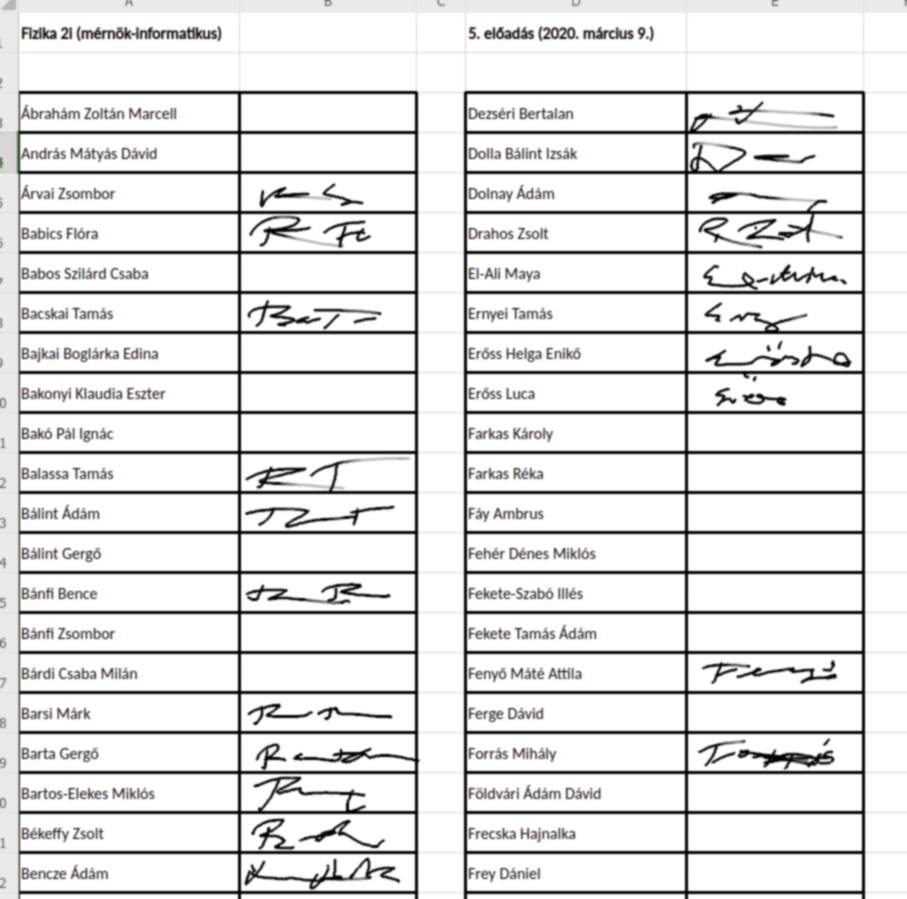 A B C D E
Fizika 2i (mérnök-informatikus) 5. előadás (2020. március 9.)
Ábrahám Zoltán Marcell Dezséri Bertalan
András Mátyás Dávid Dolla Bálint Izsák
Árvai Zsombor Dolnay Ádám
Babics Flóra Drahos Zsolt
Babos Szilárd Csaba El-Ali Maya
Bacskai Tamás Ernyei Tamás
Bajkai Boglárka Edina Erőss Helga Enikő
Bakonyi Klaudia Eszter Erőss Luca
Bakó Pál Ignác Farkas Károly
Balassa Tamás Farkas Réka
Bálint Ádám Fáy Ambrus
Bálint Gergő Fehér Dénes Miklós
Bánfi Bence Fekete-Szabó Illés
Bánfi Zsombor Fekete Tamás Ádám
Bárdi Csaba Milán Fenyő Máté Attila
Barsi Márk Ferge Dávid
Barta Gergő Forrás Mihály
Bartos-Elekes Miklós Földvári Ádám Dávid
Békeffy Zsolt Frecska Hajnalka
Bencze Ádám Frey Dániel